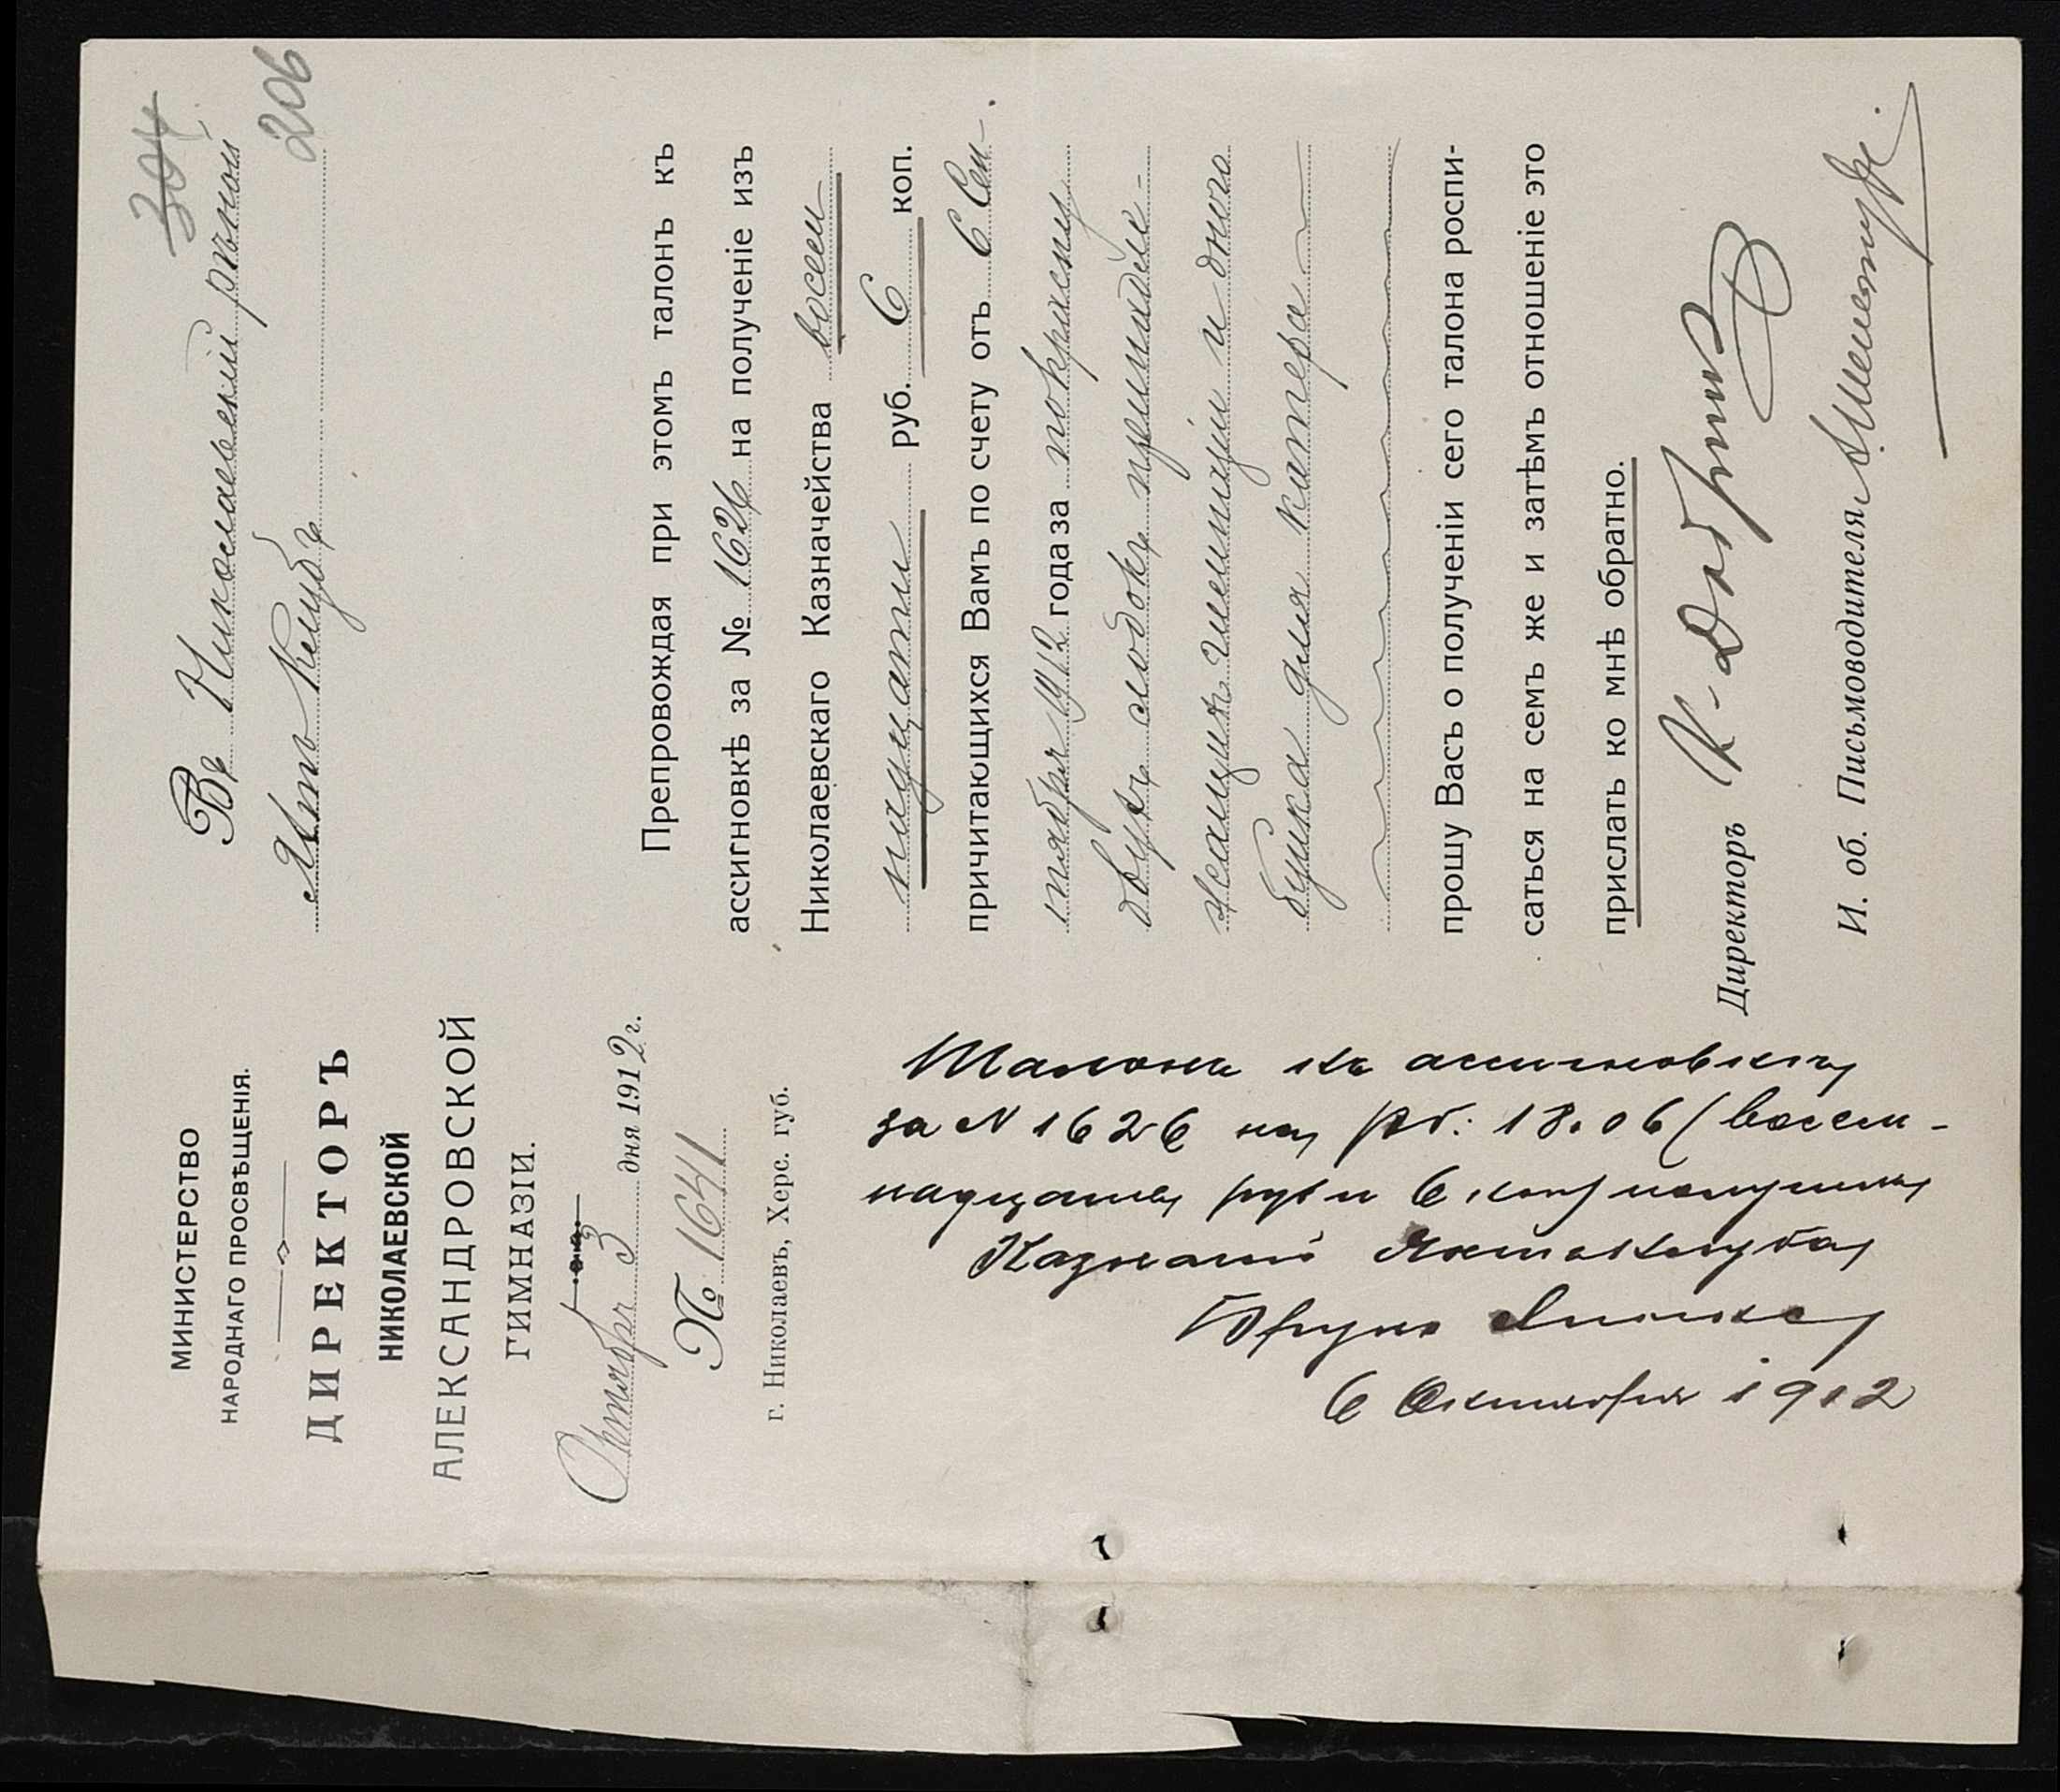 304
206
МИНИСТЕРСТВО
НАРОДНАГО ПРОСВѢЩЕНІЯ.
ДИРЕКТОРЪ
НИКОЛАЕВСКОЙ
АЛЕКСАНДРОВСКОЙ
ГИМНАЗІИ.
Октября 3 дня 1912 г.
№ 1641
г. Николаевъ, Херс. губ.
Въ Николаевскій рѣчной
Яхтъ Клубъ
Препровождая при этомъ талонъ къ
ассигновкѣ за № 1626 на полученіе изъ
Николаевскаго Казначейства восем
надцати руб. 6 коп.
причитающихся Вамъ по счету отъ 6 Сен-
тября 1912 года за покраску
двухъ лодокъ принадле-
жащихъ гимназіи и одного
буика для катера
прошу Васъ о полученіи сего талона роспи-
саться на семъ же и затѣмъ отношеніе это
прислать ко мнѣ обратно.
Директоръ К. Добр
И. об. Письмоводителя
Талонъ къ ассигновкѣ
за N 1626 на Рб: 18.06 (восем-
надцать руб и 6 коп) получилъ
Казначей Яхтъ Клуба
Бруно
6 Октября 1912